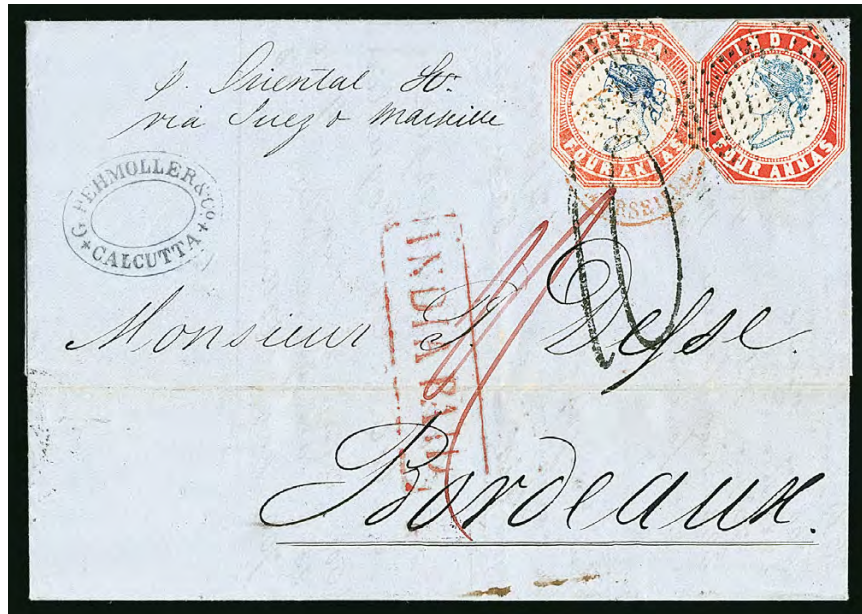 p. Oriental Str.
via Suez & Marseille
INDIA
FOUR ANNAS
INDIA
FOUR ANNAS
G. PEHMOLLER & Co.
CALCUTTA
INDIA PAID
10
Monsieur P.
Bordeaux.